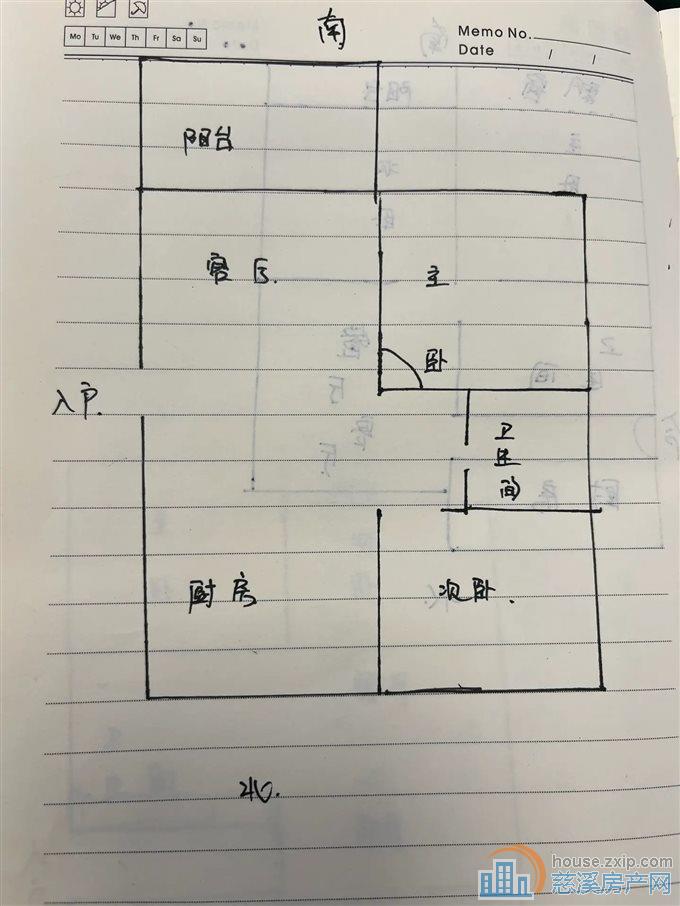 南
Memo No.
Mo Tu We Th Fr Sa Su
Date / /
阳台
客厅.
主
卧
入户.
卫
生
间
厨房
次卧.
北.
house.zxip.com
慈溪房产网